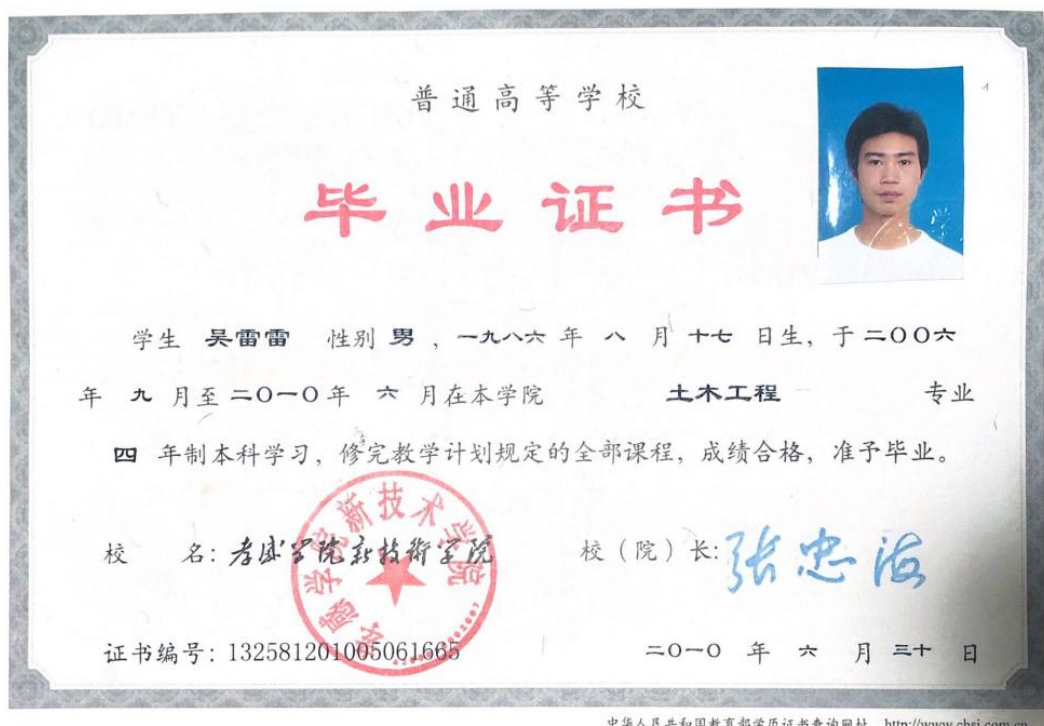 普通高等学校
毕业证书
学生 吴雷雷 性别 男 ，一九八六 年 八 月 十七 日生，于 二〇〇六
年 九 月至 二〇一〇 年 六 月在本学院 土木工程 专业
四 年制本科学习，修完教学计划规定的全部课程，成绩合格，准予毕业。
校 名：孝感学院新技術学院
校（院）长：张忠海
孝感学院新技术学院
证书编号：132581201005061665
二〇一〇 年 六 月 三十 日
中华人民共和国教育部学历证书查询网址 http://www.chsi.com.cn